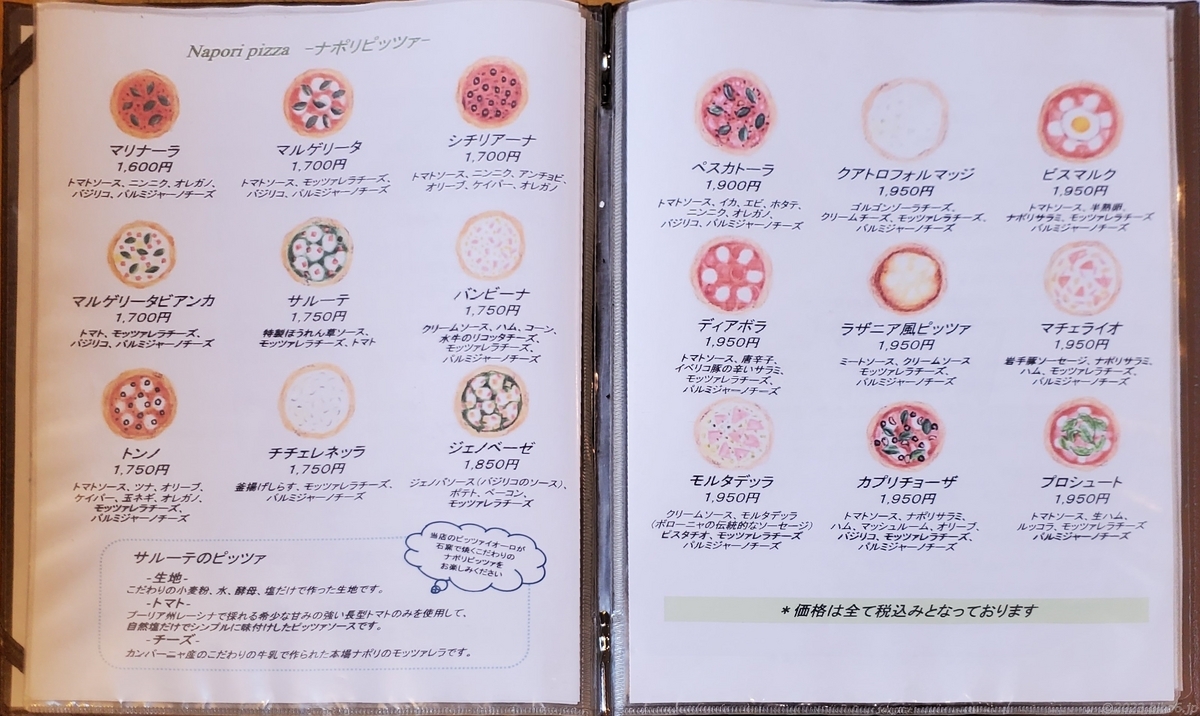 Napori pizza －ナポリピッツァ－
マリナーラ
1,600円
トマトソース、ニンニク、オレガノ、
バジリコ、パルミジャーノチーズ
マルゲリータ
1,700円
トマトソース、モッツァレラチーズ、
バジリコ、パルミジャーノチーズ
シチリアーナ
1,700円
トマトソース、ニンニク、アンチョビ、
オリーブ、ケイパー、オレガノ
マルゲリータビアンカ
1,700円
トマト、モッツァレラチーズ、
バジリコ、パルミジャーノチーズ
サルーテ
1,750円
特製ほうれん草ソース、
モッツァレラチーズ、トマト
バンビーナ
1,750円
クリームソース、ハム、コーン、
水牛のリコッタチーズ、
モッツァレラチーズ、
パルミジャーノチーズ
トンノ
1,750円
トマトソース、ツナ、オリーブ、
ケイパー、玉ネギ、オレガノ、
モッツァレラチーズ、
パルミジャーノチーズ
チチェレネッラ
1,750円
釜揚げしらす、モッツァレラチーズ、
パルミジャーノチーズ
ジェノベーゼ
1,850円
ジェノバソース(バジリコのソース)、
ポテト、ベーコン、
モッツァレラチーズ
当店のピッツァイオーロが
石窯で焼くこだわりの
ナポリピッツァを
お楽しみください
サルーテのピッツァ
-生地-
こだわりの小麦粉、水、酵母、塩だけで作った生地です。
-トマト-
プーリア州レーシナで採れる希少な甘みの強い長型トマトのみを使用して、
自然塩だけでシンプルに味付けしたピッツァソースです。
-チーズ-
カンパーニャ産のこだわりの牛乳で作られた本場ナポリのモッツァレラです。
ペスカトーラ
1,900円
トマトソース、イカ、エビ、ホタテ、
ニンニク、オレガノ、
バジリコ、パルミジャーノチーズ
クアトロフォルマッジ
1,950円
ゴルゴンゾーラチーズ、
クリームチーズ、モッツァレラチーズ、
パルミジャーノチーズ
ビスマルク
1,950円
トマトソース、半熟卵、
ナポリサラミ、モッツァレラチーズ
パルミジャーノチーズ
ディアボラ
1,950円
トマトソース、唐辛子、
イベリコ豚の辛いサラミ、
モッツァレラチーズ、
パルミジャーノチーズ
ラザニア風ピッツァ
1,950円
ミートソース、クリームソース
モッツァレラチーズ、
パルミジャーノチーズ
マチェライオ
1,950円
岩手豚ソーセージ、ナポリサラミ、
ハム、モッツァレラチーズ、
パルミジャーノチーズ
モルタデッラ
1,950円
クリームソース、モルタデッラ
(ボローニャの伝統的なソーセージ)
ピスタチオ、モッツァレラチーズ
パルミジャーノチーズ
カプリチョーザ
1,950円
トマトソース、ナポリサラミ、
ハム、マッシュルーム、オリーブ、
バジリコ、モッツァレラチーズ、
パルミジャーノチーズ
プロシュート
1,950円
トマトソース、生ハム、
ルッコラ、モッツァレラチーズ
パルミジャーノチーズ
＊価格は全て税込みとなっております